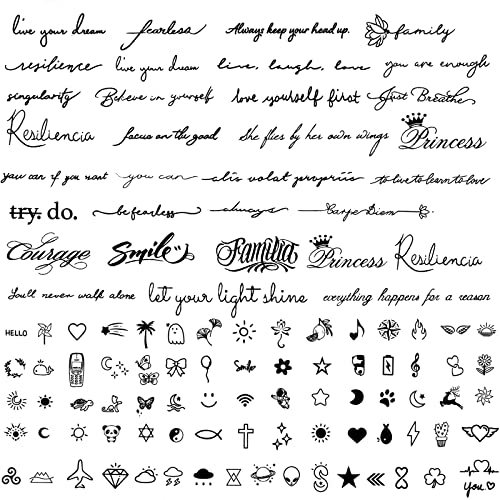 live your dream fearless Always keep your head up. family
resilience live your dream live, laugh, love you are enough
singularity Believe in yourself love yourself first Just Breathe
Resiliencia focus on the good She flies by her own wings Princess
you can if you want you can alis volat propriis to live to learn to love
try. do. be fearless always Carpe Diem
Courage Smile Familia Princess Resiliencia
You'll never walk alone let your light shine everything happens for a reason
HELLO
Smile
you